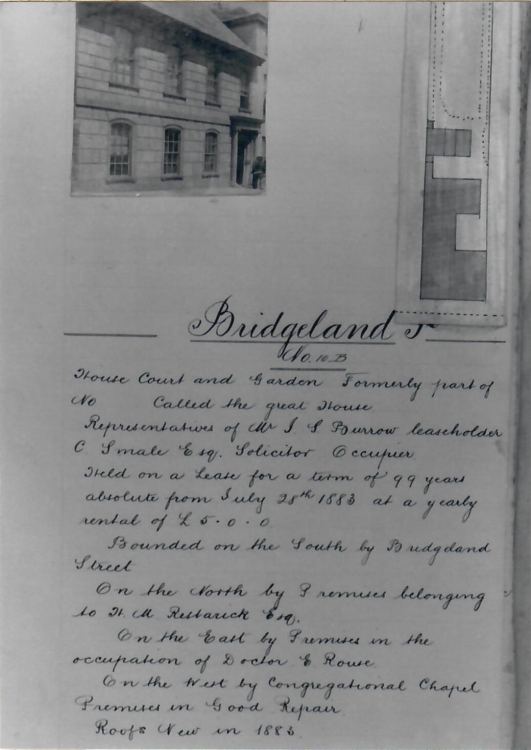 Bridgeland S
No. 10 B
House Court and Garden Formerly part of
No Called the great House
Representatives of Mr J S Burrow leaseholder
C Smale Esq. Solicitor Occupier
Held on a Lease for a term of 99 years
absolute from July 28th 1883 at a yearly
rental of £5.0.0
Bounded on the South by Bridgeland
Street
On the North by Premises belonging
to H. M. Restarick Esq.
On the East by Premises in the
occupation of Doctor E Rouse
On the West by Congregational Chapel
Premises in Good Repair
Roofs New in 1883